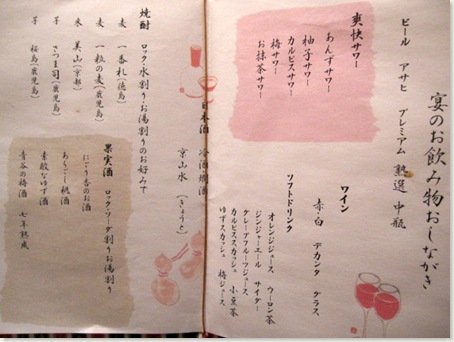 宴のお飲み物おしながき
ビール アサヒ プレミアム 熟選 中瓶
爽快サワー
あんずサワー
柚子サワー
カルピスサワー
梅サワー
お抹茶サワー
ワイン
赤・白 デカンタ グラス
ソフトドリンク
オレンジジュース ウーロン茶
ジンジャーエール サイダー
グレープフルーツジュース
カルピススカッシュ 小豆茶
ゆずスカッシュ 梅ジュース
日本酒 冷酒・燗酒
京山水
焼酎 ロック・水割り・お湯割りのお好みで
麦 一番札(徳島)
麦 一粒の麦(鹿児島)
米 美山(京都)
芋 さつま司(鹿児島)
芋 桜島(鹿児島)
果実酒 ロック・ソーダ割り・お湯割り
にごり杏のお酒
あらごし桃酒
素敵なゆず酒
青谷の梅酒 七年熟成